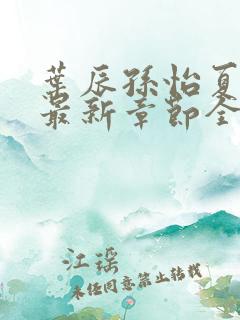 叶辰孙怡夏
最新章节全
江瑶
未经同意禁止转载